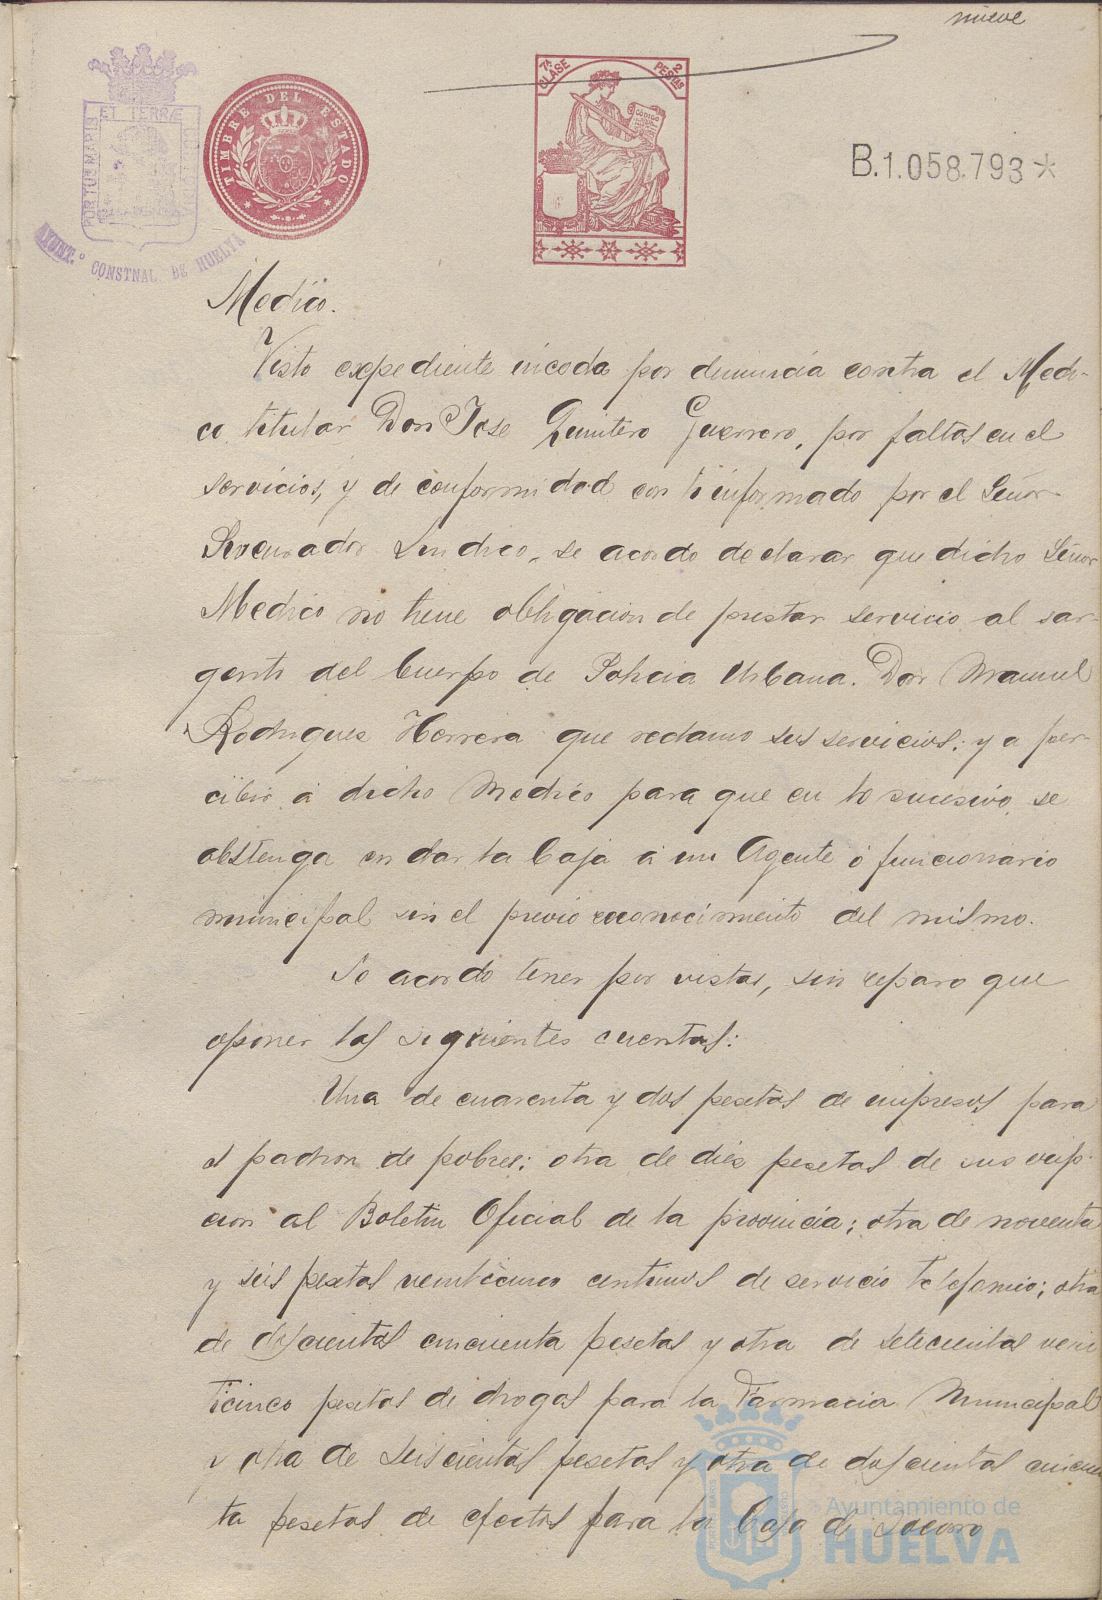 nueve
PORTUS MARIS ET TERRÆ
AYUNT.º CONSTNAL DE HUELVA
TIMBRE DEL ESTADO
7ª CLASE
2 PESETAS
CODIGO
B.1.058.793*
Medico.
Visto expediente incoda por denuncia contra el Medi-
co titular Don Jose Quintero Guerrero, por faltas en el
servicios, y de conformidad con lo informado por el Señor
Procurador Sindico, se acordo declarar que dicho Señor
Medico no tiene obligacion de prestar servicio al sar-
gento del Cuerpo de Policia Urbana. Don Manuel
Rodriguez Herrera que reclamo sus servicios; y a per-
cibir á dicho Medico para que en lo sucesivo se
abstenga en dar la baja á un Agente ó funcionario
municipal sin el previo reconocimiento del mismo.
Se acordo tener por vistas, sin reparo que
oponer las siguientes cuentas:
Una de cuarenta y dos pesetas de impresos para
el padron de pobres; otra de diez pesetas de suscrip-
cion al Boletin Oficial de la provincia; otra de noventa
y seis pesetas veinticinco centimos de servicio telefonico; otra
de doscientas cincuenta pesetas y otra de setecientas vein
ticinco pesetas de drogas para la Farmacia Municipal
y otra de seiscientas pesetas y otra de doscientas cincuen
ta pesetas de efectos para la Casa de Socorro
Ayuntamiento de
HUELVA